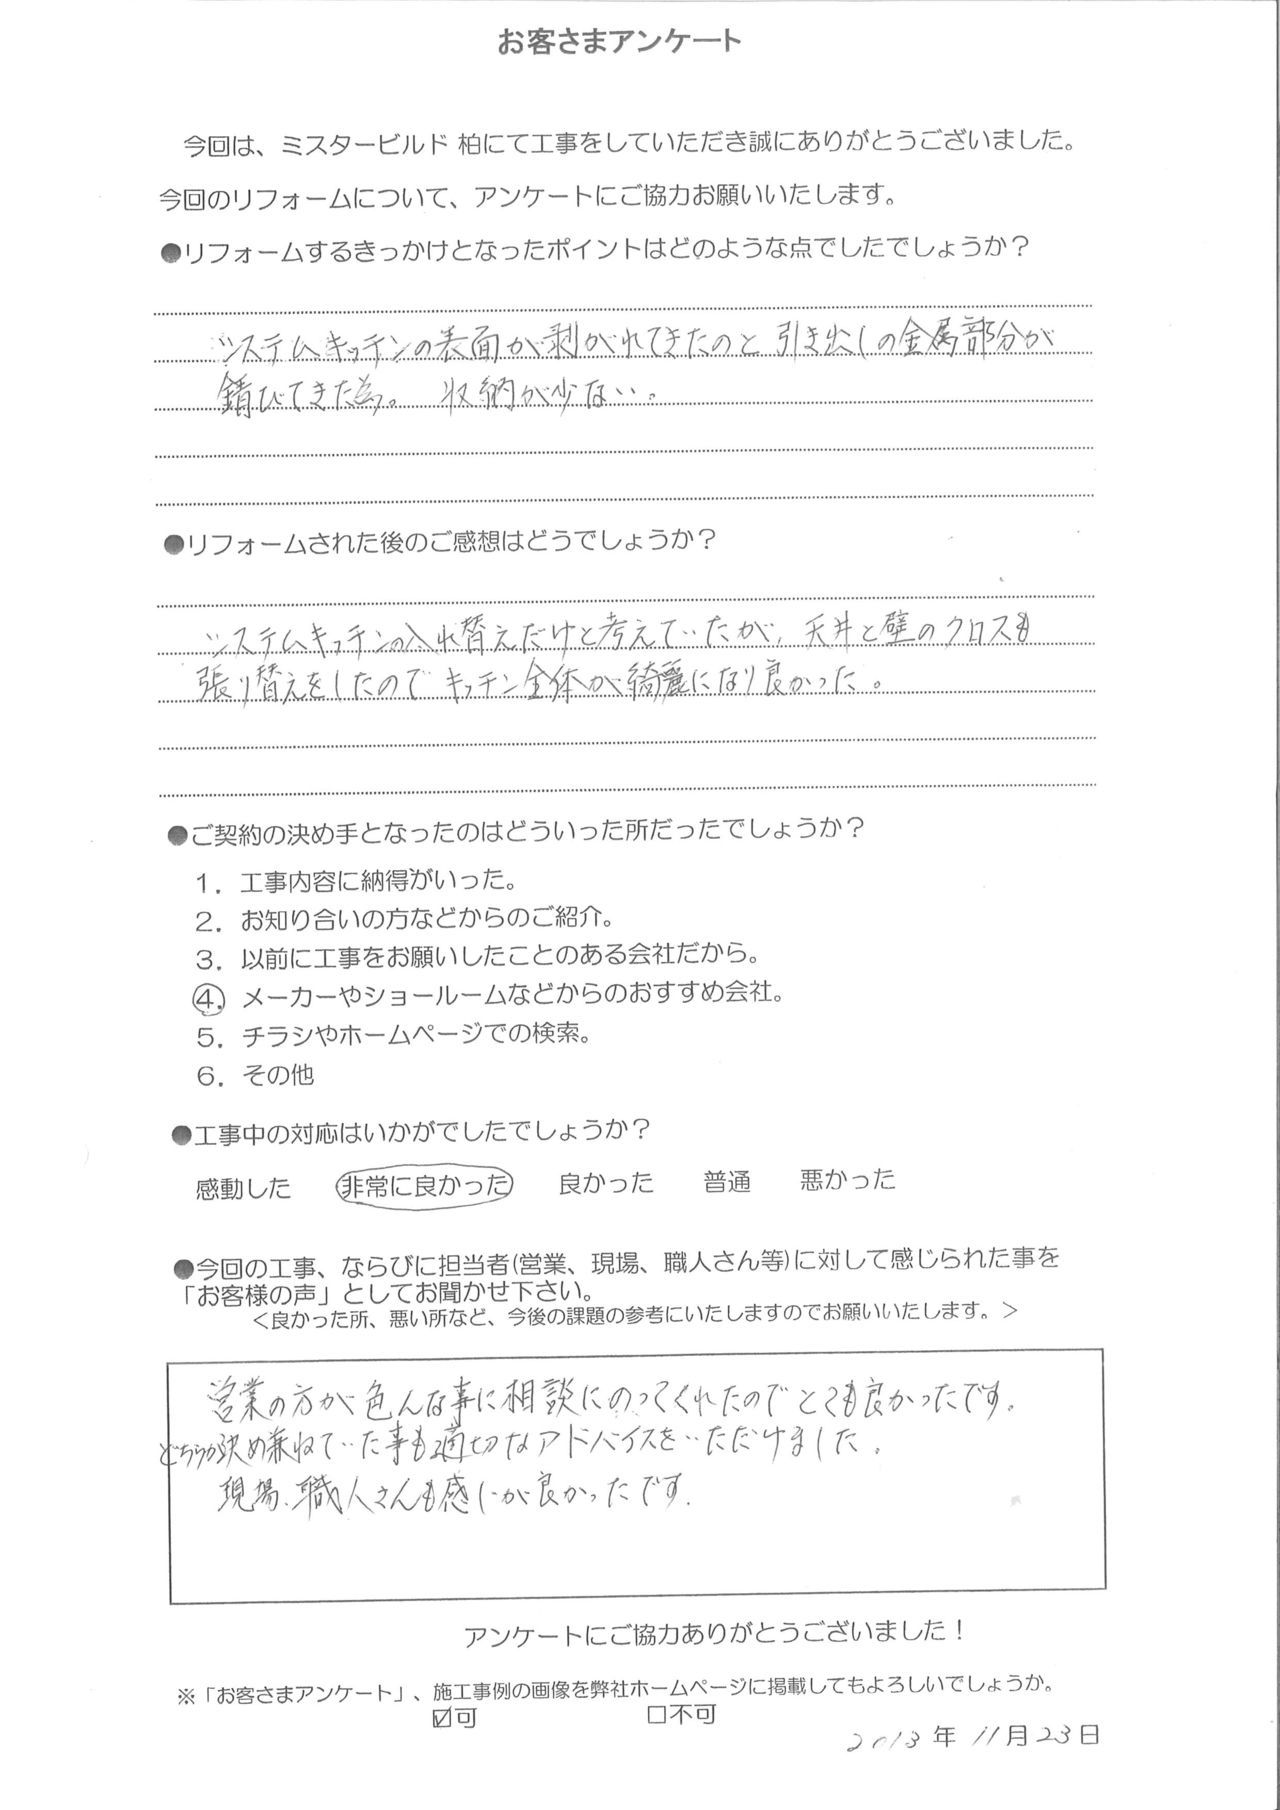 お客さまアンケート
今回は、ミスタービルド 柏にて工事をしていただき誠にありがとうございました。
今回のリフォームについて、アンケートにご協力お願いいたします。
●リフォームするきっかけとなったポイントはどのような点でしたでしょうか？
システムキッチンの表面が剥がれてきたのと引き出しの金属部分が
錆びてきた為。 収納が少ない。
●リフォームされた後のご感想はどうでしょうか？
システムキッチンの入れ替えだけと考えていたが、天井と壁のクロスも
張り替えをしたのでキッチン全体が綺麗になり良かった。
●ご契約の決め手となったのはどういった所だったでしょうか？
1．工事内容に納得がいった。
2．お知り合いの方などからのご紹介。
3．以前に工事をお願いしたことのある会社だから。
4．メーカーやショールームなどからのおすすめ会社。
5．チラシやホームページでの検索。
6．その他
●工事中の対応はいかがでしたでしょうか？
感動した 非常に良かった 良かった 普通 悪かった
●今回の工事、ならびに担当者(営業、現場、職人さん等)に対して感じられた事を
「お客様の声」としてお聞かせ下さい。
＜良かった所、悪い所など、今後の課題の参考にいたしますのでお願いいたします。＞
営業の方が色んな事に相談にのってくれたのでとても良かったです。
どちらか決め兼ねていた事も適切なアドバイスをいただけました。
現場、職人さんも感じが良かったです。
アンケートにご協力ありがとうございました！
※「お客さまアンケート」、施工事例の画像を弊社ホームページに掲載してもよろしいでしょうか。
☑可 □不可
2013年11月23日